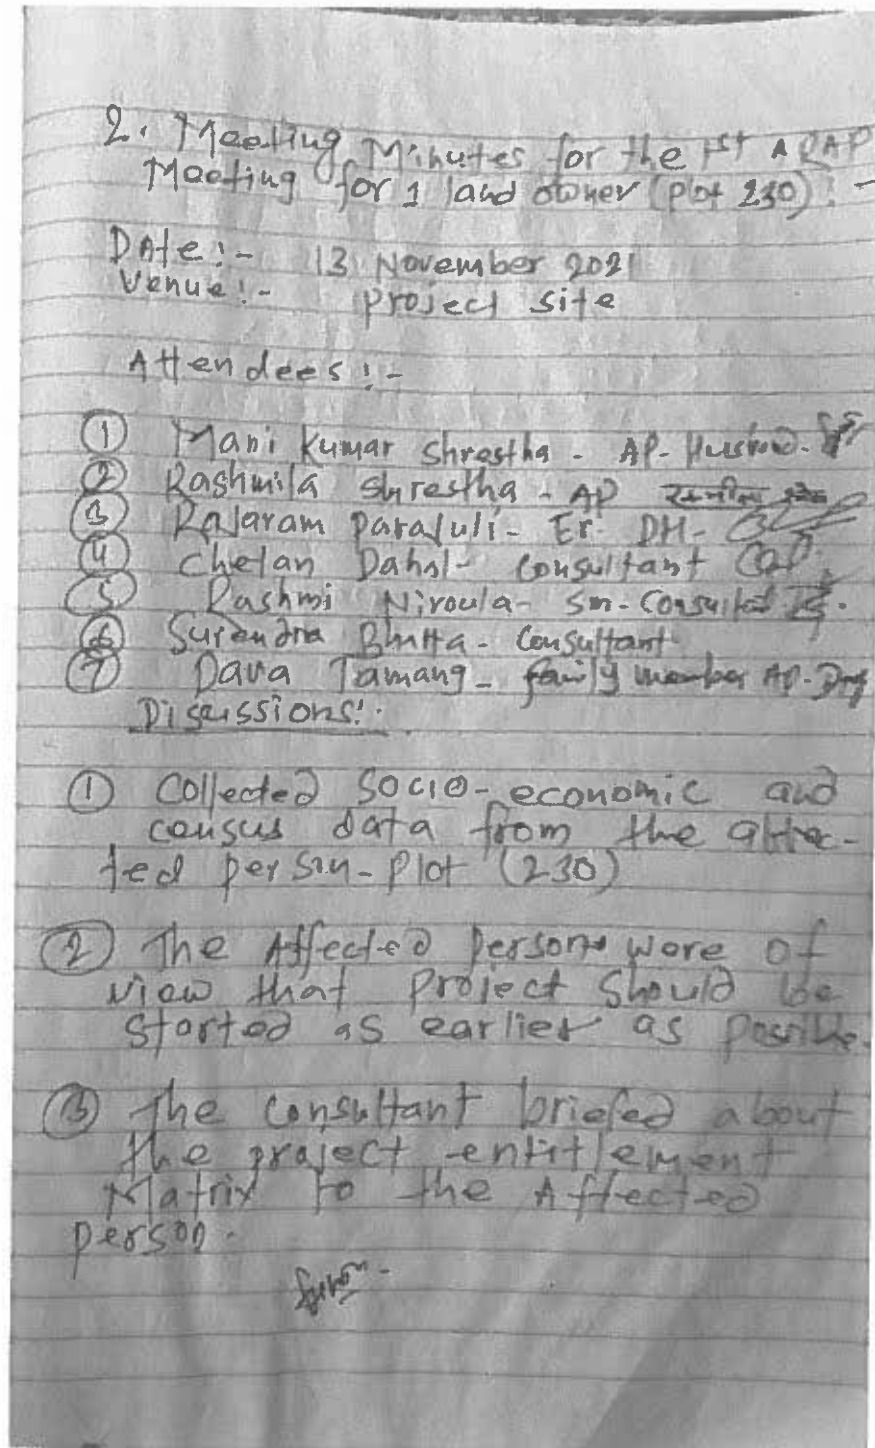 2. Meeting Minutes for the 1st ARAP
Meeting for 1 land owner (plot 230) :-
Date :- 13 November 2021
Venue :- Project site
Attendees :-
① Mani Kumar Shrestha - AP - Husband -
② Rashmila Shrestha - AP
③ Rajaram Parajuli - Er. DH -
④ Chetan Dahal - Consultant
⑤ Rashmi Niroula - Sm - Consultant
⑥ Surendra Bhatta - Consultant
⑦ Dava Tamang - family member AP -
Discussions :-
① Collected Socio-economic and
census data from the affec-
ted person - plot (230)
② The Affected persons were of
view that project should be
started as earlier as possible.
③ The Consultant briefed about
the project entitlement
Matrix to the Affected
person.